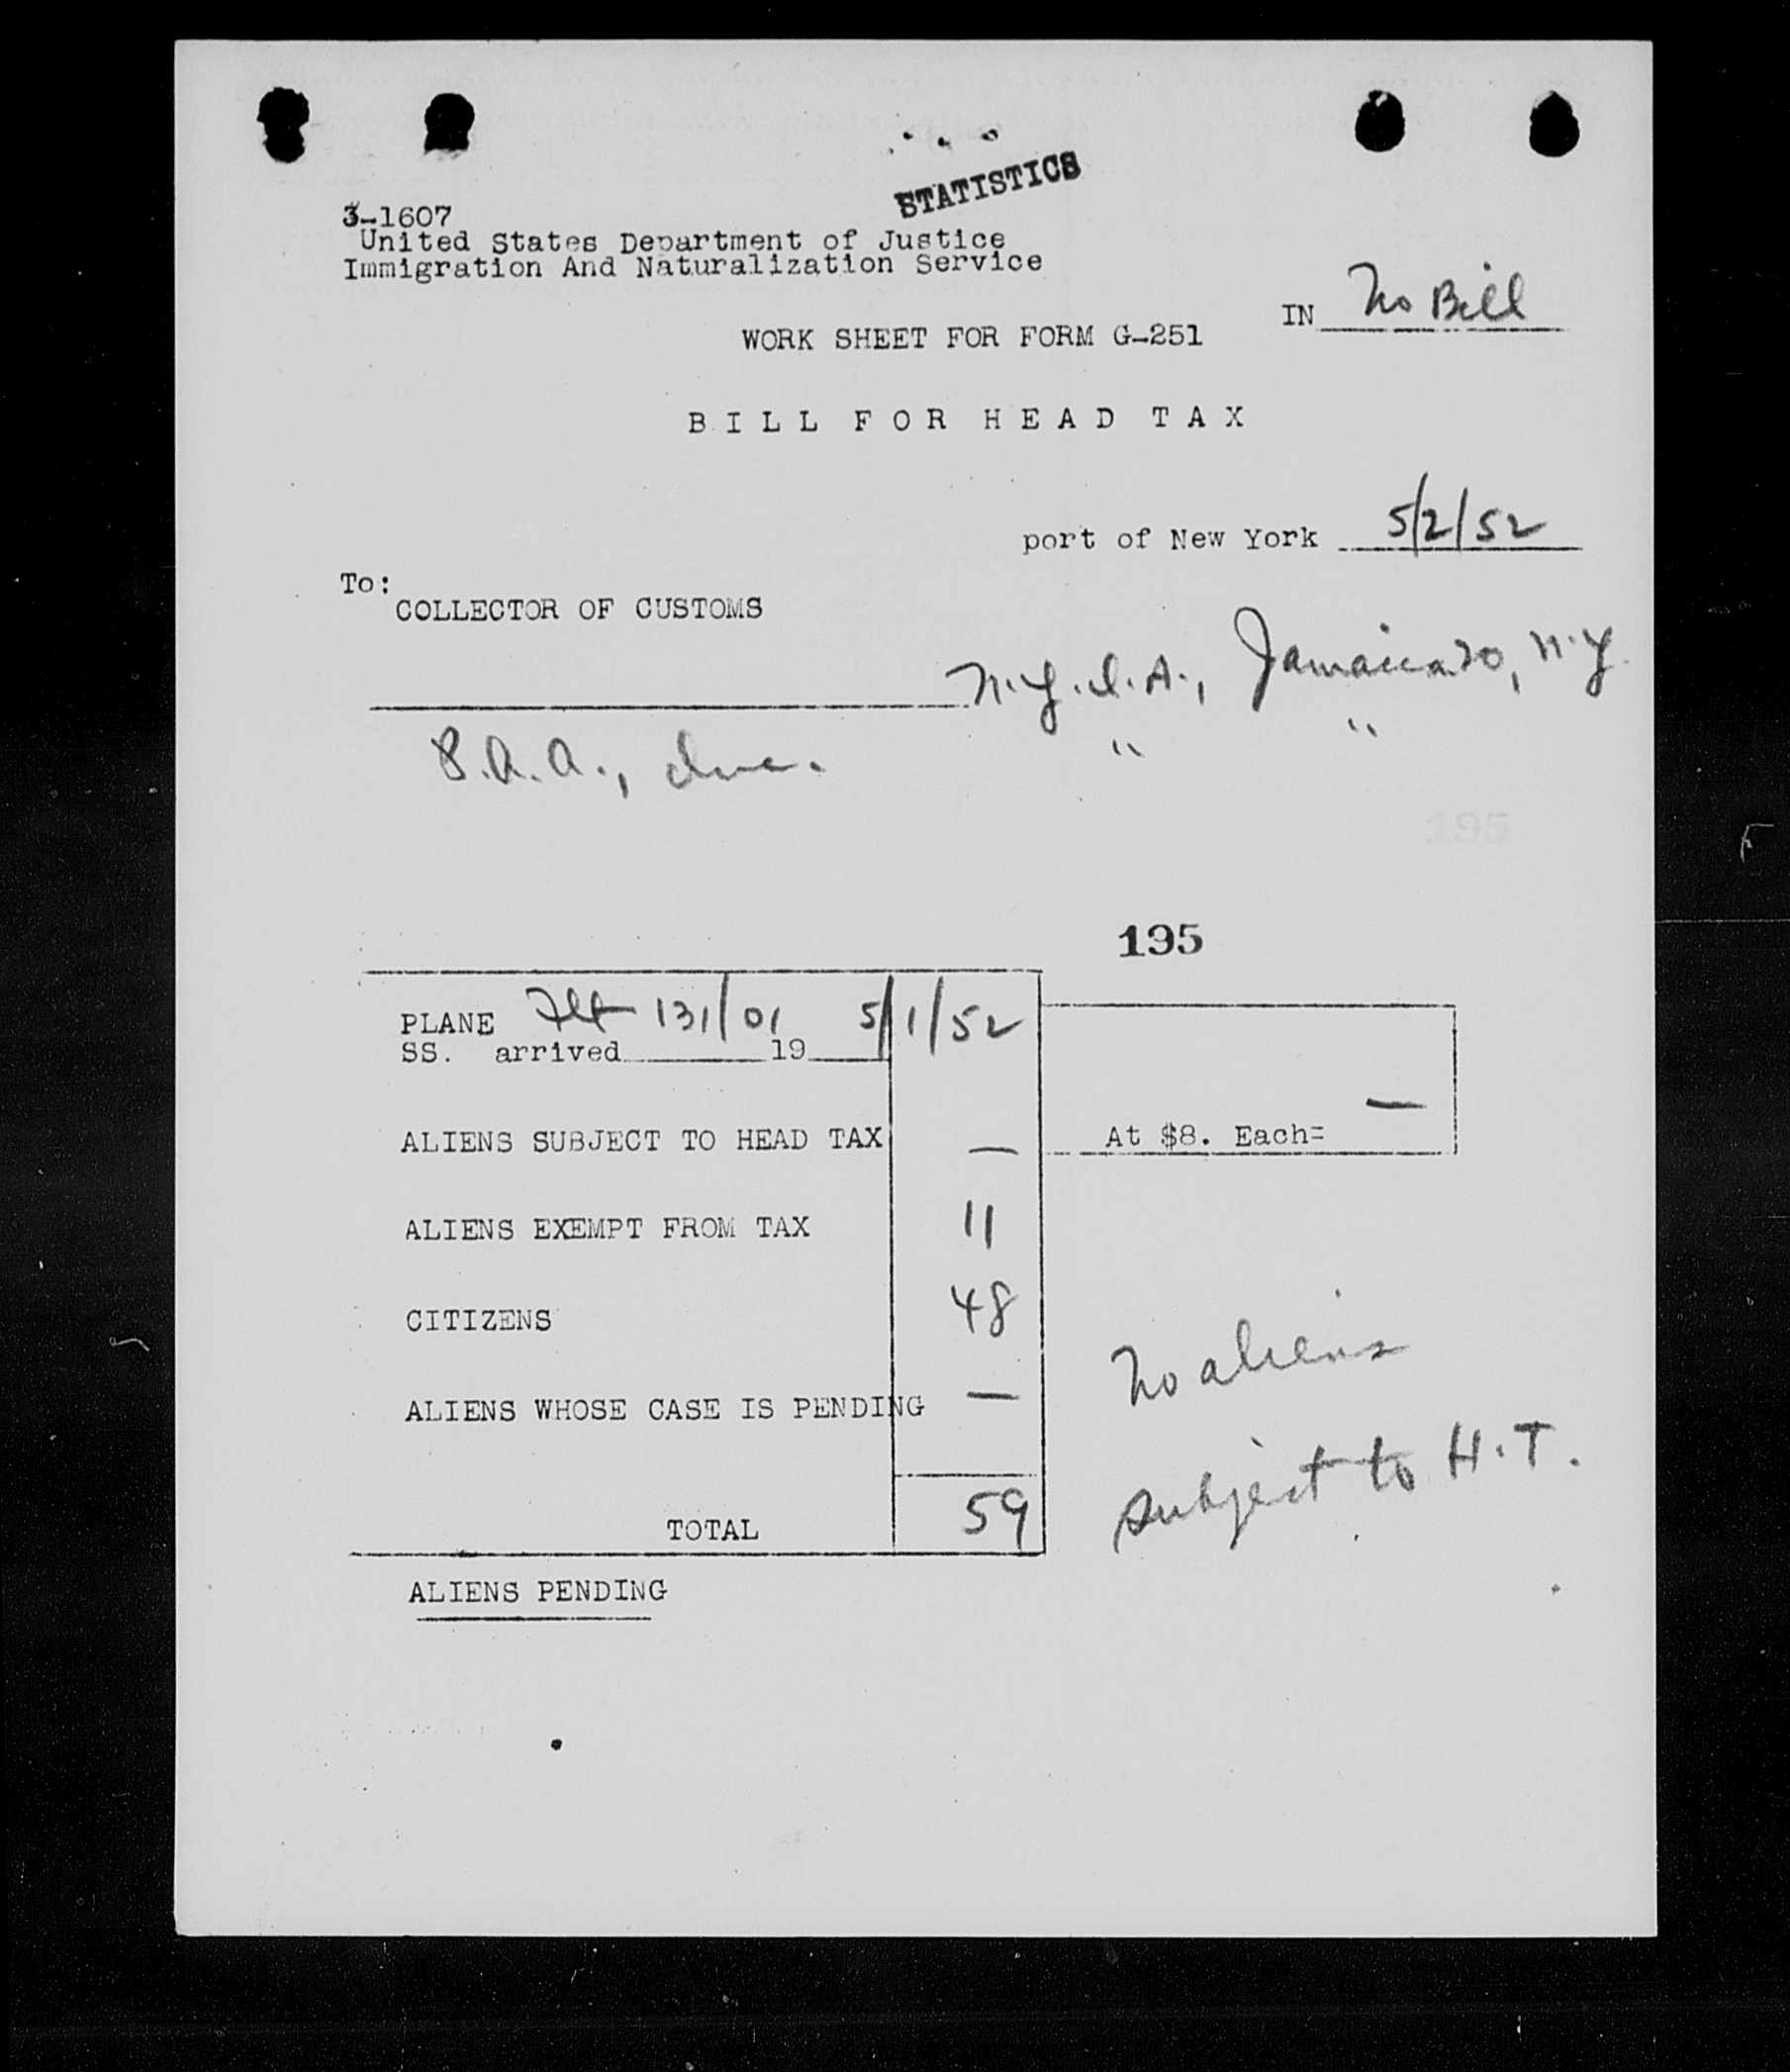 STATISTICS
3-1607
United States Department of Justice
Immigration And Naturalization Service
IN No Bill
WORK SHEET FOR FORM G-251
BILL FOR HEAD TAX
port of New York 5/2/52
To:
COLLECTOR OF CUSTOMS
N.Y.I.A., Jamaica 30, N.Y.
P.A.A., Inc. " "
195
195
PLANE Flt 131/01 5/1/52
SS. arrived 19
ALIENS SUBJECT TO HEAD TAX — At $8. Each= —
ALIENS EXEMPT FROM TAX 11
CITIZENS 48
ALIENS WHOSE CASE IS PENDING —
No aliens
subject to H.T.
TOTAL 59
ALIENS PENDING